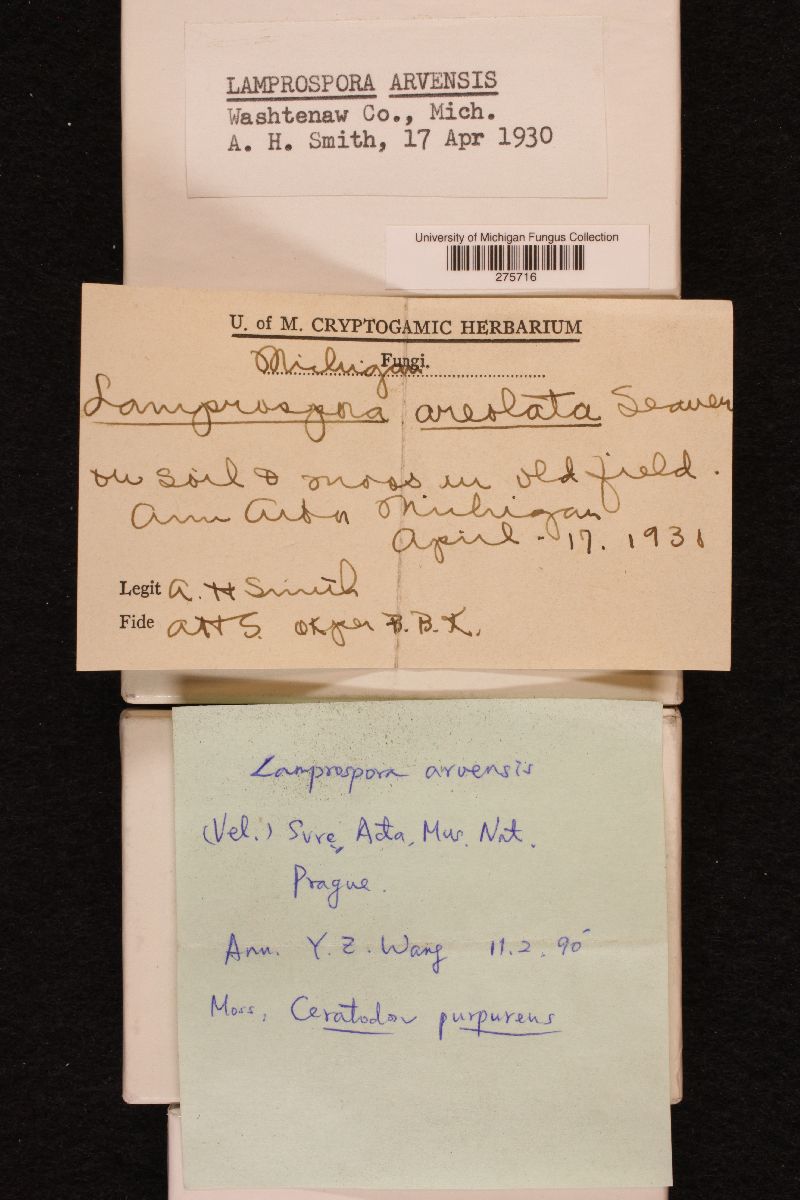 LAMPROSPORA ARVENSIS
Washtenaw Co., Mich.
A. H. Smith, 17 Apr 1930
University of Michigan Fungus Collection
275716
U. of M. CRYPTOGAMIC HERBARIUM
Fungi.
Michigan
Lamprospora areolata Seaver
on soil & moss in old field.
Ann Arbor Michigan
April - 17. 1931
Legit A. H Smith
Fide AHS. OK per B. B. K.
Lamprospora arvensis
(Vel.) Svrč, Acta, Mus. Nat.
Prague.
Ann. Y. Z. Wang 11. 2. 90'
Moss, Ceratodon purpureus